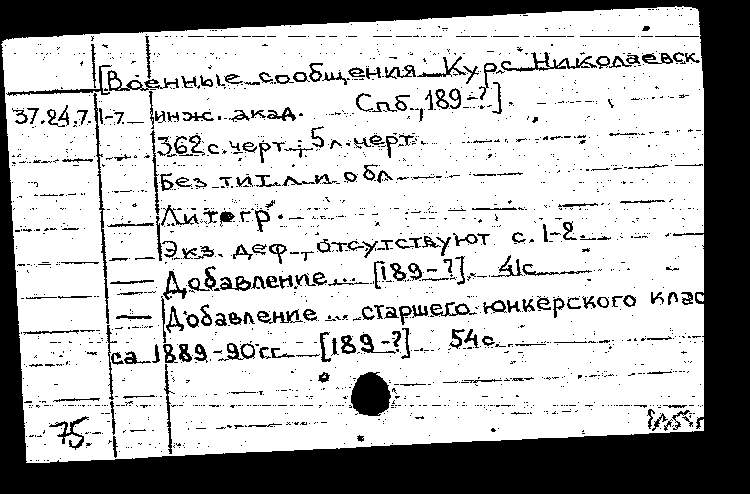 [Военные сообщения. Курс Николаевск.
37.24.7.1-7 инж. акад. Спб, 189-?].
362 с. черт.; 5 л. черт.
Без тит. л. и обл.
Литогр.
Экз. деф., отсутствуют с. 1-2.
— Добавление... [189-?]. 41с
— Добавление... старшего юнкерского клас
са 1889-90 гг. [189-?] 54с.
75.